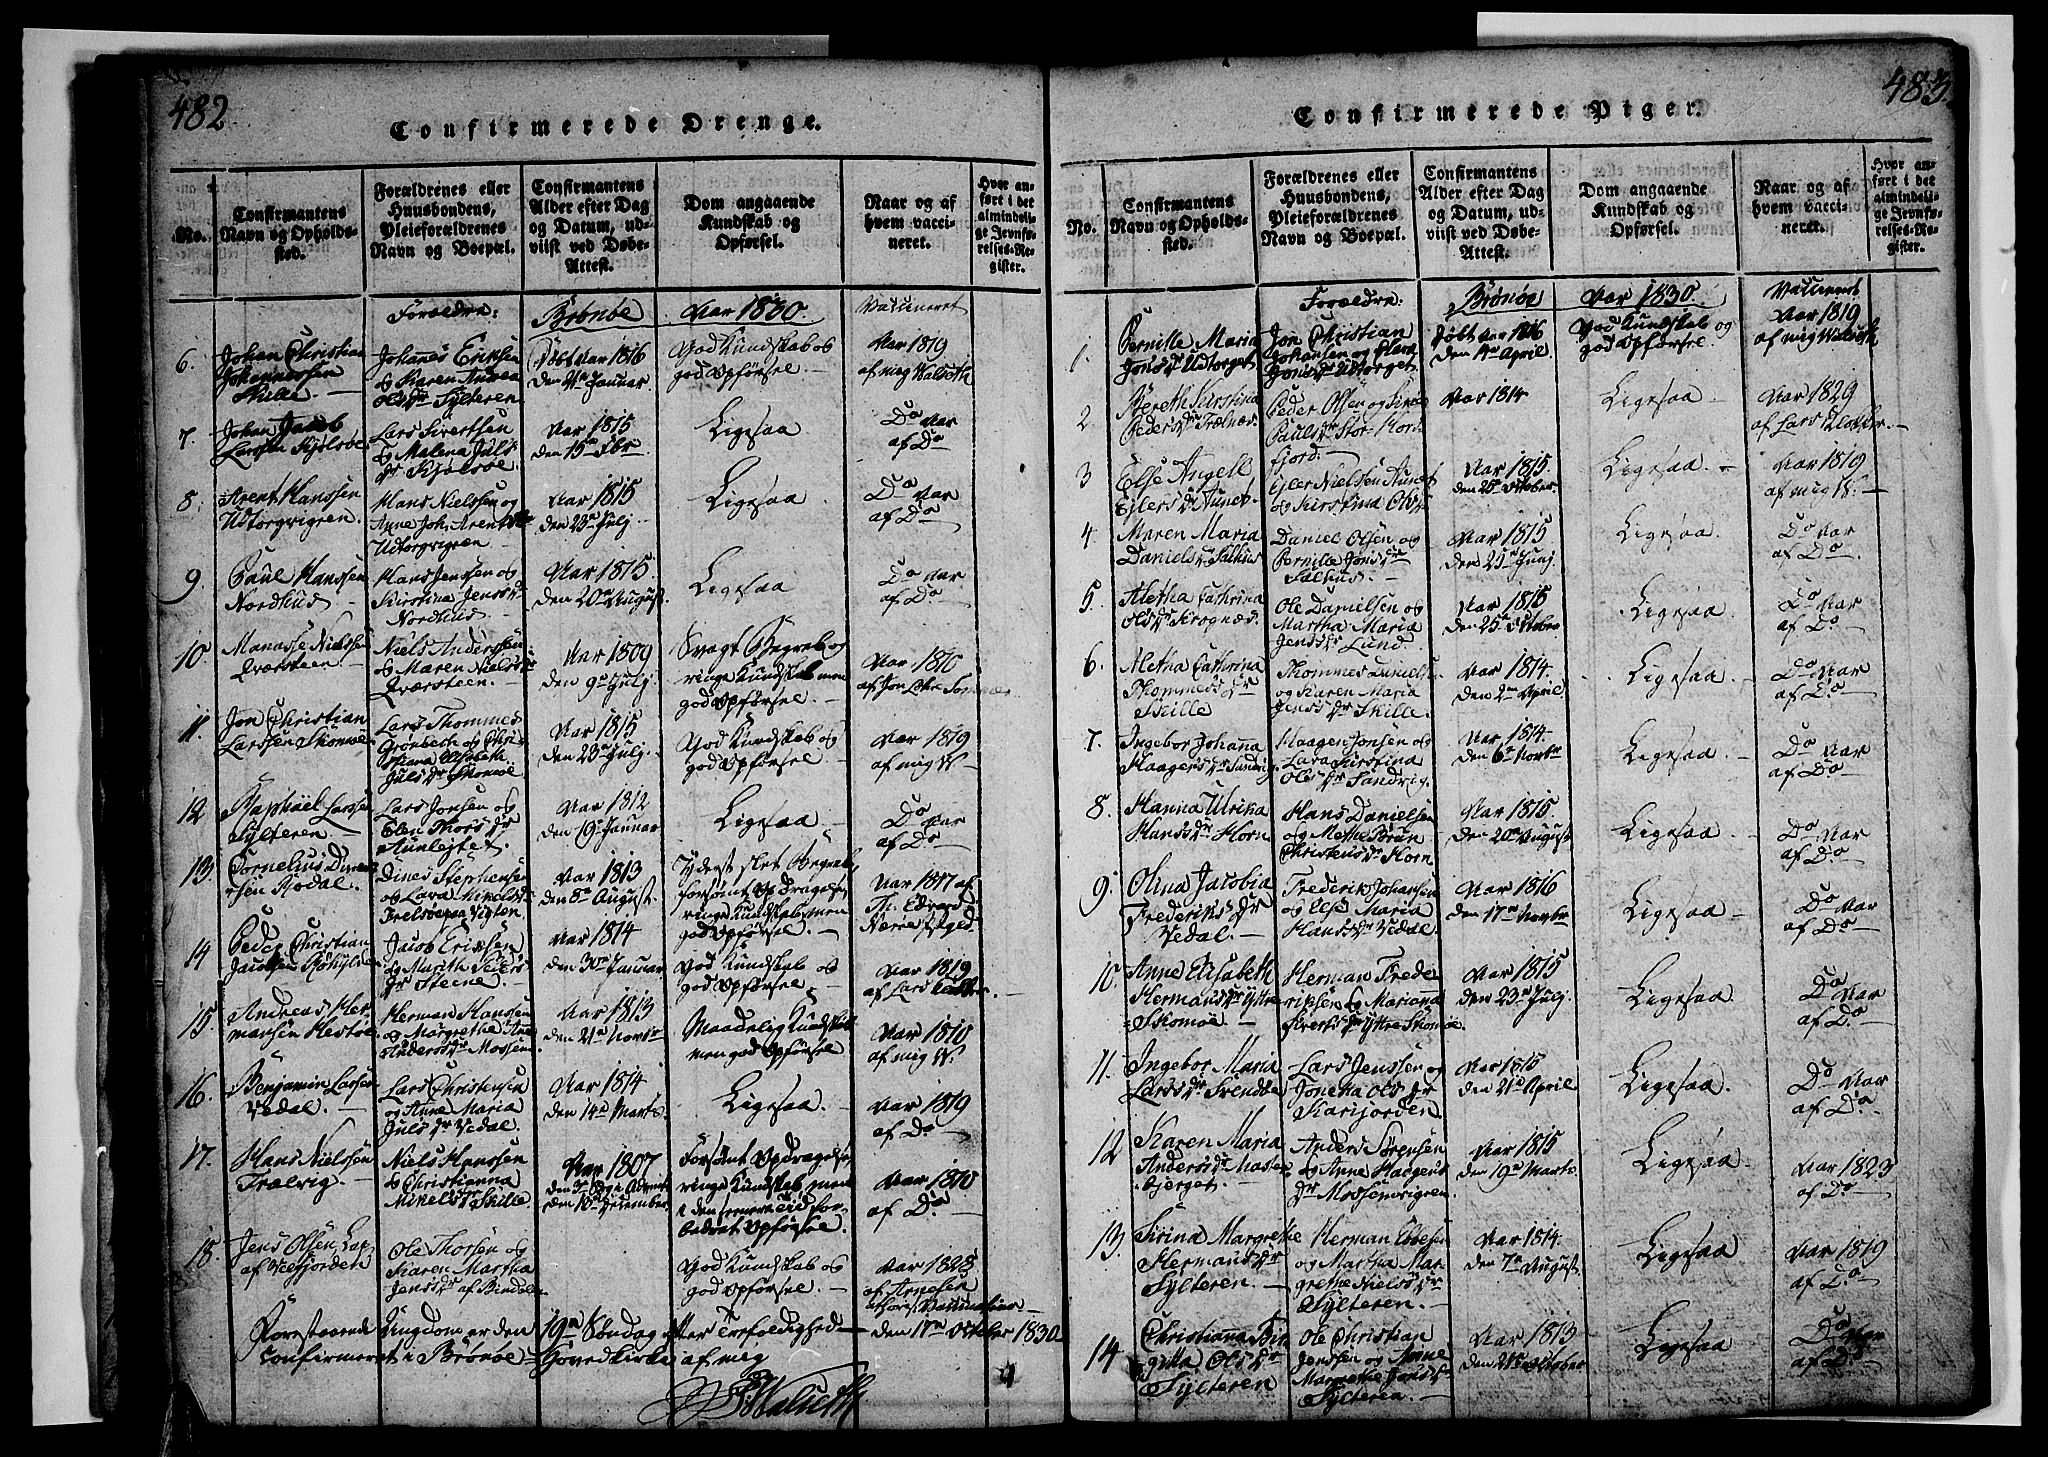 482
Confirmerede Drenge.
No.
Confirmantens
Navn og Opholds-
sted.
Forældrenes eller
Huusbondens,
Pleieforældrenes
Navn og Boepæl.
Confirmantens
Alder efter Dag
og Datum, ud-
viist ved Døbe-
Attest.
Dom angaaende
Kundskab og
Opførsel.
Naar og af
hvem vacci-
neret.
Hvor an-
ført i det
almindeli-
ge Jevnfø-
relses-Re-
gister.
Forældre:
Brønøe
Aar 1830.
Vaccineret
6.
Johan Christian
Johannessen
Skille.
Johannes Eriksen
og Karen Andrea
Olsdr Sylteren.
Født Aar 1816
den 21de Januar
God Kundskab og
god Opførsel
Aar 1819
af mig Walseth
7.
Johan Jacob
Larssen Kjølsøe
Lars Sivertsen
og Malena Juls
dr Kjølsøe.
Aar 1815
den 15de
Ligesaa
Do Aar
af Do
8.
Arent Hanssen
Udtorgvigren.
Hans Nielssen og
Anne Joh. Arents dr
Udtorgvigren
Aar 1815
den 23de Julj.
Ligesaa
Do Aar
af Do
9.
Paul Hanssen
Nordhuus
Hans Jenssen og
Kirstina Jensdr
Nordhuus.
Aar 1815.
den 20de August.
Ligesaa
Do Aar
af Do
10.
Manasse Nielssen
Qværsteen.
Niels Anderssen
og Maren Nielsdr
Qværsteen.
Aar 1809
den 9de Julj.
Svagt Begreb og
ringe Kundskab men
god Opførsel
Aar 1810
af Jon
11.
Jon Christian
Larssen Skomoe
Lars Thommes.
Grønbech og Chri-
stiana Elisabeth
Julsdr Skomoe
Aar 1815
den 23de Julj.
God Kundskab og
god Opførsel
Aar 1819
af mig W.
12
Raphael Larsen
Sylteren.
Lars Jonsen og
Elen Thorsdr
Aunlejtet.
Aar 1812
den 19de Januar
Ligesaa
Do Aar
af Do
13.
Cornelius Dines-
sen Rødal.
Dines Stephensen
og Lava Mikelsdr
Aar 1813
den 8de August.
Yderst slet Begreb,
forsømt Opdragelse,
ringe Kundskab, men
god Opførsel.
Aar 1817 af
Th. Edvard
14
Peder Christian
Jacobsen
Jacob Eriksen
og Marith Peders
dr Steene.
Aar 1814
den 30te Januar
God Kundskab og
god Opførsel
Aar 1819
af Lars
15.
Andreas Her-
mansen
Herman Hanssen
og Margrethe
Andersdr Mossem
Aar 1813
den 21de Novbr
Maadelig Kundskab
men god Opførsel
Aar 1810
af mig W.
16.
Benjamin Larsen
Vedal.
Lars Christensen
og Anne Maria
Julsdr Vedal.
Aar 1814
den 14de Marts.
Ligesaa.
Aar 1819
af Do.
17.
Hans Nielssen
Trælvig.
Niels Hanssen
og Christianna
Mikelsdr Skille.
Aar 1807
den 3die S. i Advent
den 18de December.
Forsømt Opdragelse,
ringe Kundskab, men
i den senere Tid for-
bedret Opførsel.
Aar 1810
af Do.
18.
Jens Olsen Lap
af Velfjorden
Ole Thorsen og
Karen Martha
Jensdr af Bindalen
God Kundskab og
god Opførsel.
Aar 1828
af Arnesen
Vaccinateur
Forestaaende Ungdom er den 19de Søndag efter Trefoldighed den 17de October 1830
confirmeret i Brønøe Hovedkirke af mig
Walseth
483.
Confirmerede Piger.
No.
Confirmantens
Navn og Opholds-
sted.
Forældrenes eller
Huusbondens,
Pleieforældrenes
Navn og Boepæl.
Confirmantens
Alder efter Dag
og Datum, ud-
viist ved Døbe-
Attest.
Dom angaaende
Kundskab og
Opførsel.
Naar og af
hvem vacci-
neret.
Hvor an-
ført i det
almindeli-
ge Jevnfø-
relses-Re-
gister.
Forældre:
Brønøe
Aar 1830.
Vaccineret
1.
Pernille Maria
Jonsdr Udtorget
Jon Christian
Johansen og
Jonsdr Udtorget
Født Aar 1816
den 14de April.
God Kundskab og
god Opførsel
Aar 1819
af mig Walseth
2
Bereth Kirstina
Pedersdr Trælnæs.
Peder Olsen og
Paulsdr Stor-Hord-
fjord.
Aar 1814
Ligesaa
Aar 1829
af Lars Klokker.
3
Else Angell
Ejlersdr Aunet.
Ejler Nielssen Aunet
og Kirstina Olsdr
Aar 1815.
den 25de October.
Ligesaa
Aar 1819
af mig W.
4.
Maren Maria
Danielsdr Salhuus
Daniel Olsen og
Pernille Jonsdr
Salhuus.
Aar 1815
den 25de Junj.
Ligesaa
Do Aar
af Do
5.
Aletha Cathrina
Olsdr Krognæs.
Ole Danielsen og
Martha Maria
Jensdr Lund.
Aar 1815
den 25de October
Ligesaa
Do Aar
af Do
6.
Aletha Cathrina
Thommesdr
Skille
Thommes Daniels.
og Karen Maria
Jensdr Skille.
Aar 1814.
den 2den April
Ligesaa
Do Aar
af Do
7.
Ingebor Johanna
Haagensdr Sandvig.
Haagen Jonsen og
Lava Kirstina
Olsdr Sandvig.
Aar 1814.
den 6te Novbr
Ligesaa
Do Aar
af Do
8.
Hanna Ulrika
Hansdr Horn
Hans Danielsen
og Mette
Christensdr Horn
Aar 1815.
den 20de August
Ligesaa
Do Aar
af Do
9.
Olina Jacobia
Frederiksdr
Vedal.
Frederik Johansen
og Else Maria
Hansdr Vedal.
Aar 1816
den 17de Novbr
Ligesaa
Do Aar
af Do
10.
Anne Elisabeth
Hermansdr Yttre
Skomoe
Herman Frede-
riksen og Marianna
Sivertsdr Yttre Skomoe
Aar 1815
den 23de Julj.
Ligesaa
Do Aar
af Do
11.
Ingebor Maria
Larsdr
Lars Jenssen og
Jonetta Olsdr
Karifjorden
Aar 1815
den 21de April
Ligesaa
Do Aar
af Do
12
Karen Maria
Andersdr Mossem-
bjerget.
Anders Sørensen
og Anne Haagens
dr Mossemvigren.
Aar 1815
den 19de Marts
Ligesaa
Aar 1823
af Do
13.
Sirina Margrethe
Hermansdr
Sylteren.
Herman
og Martha Mar-
grethe Nielsdr
Sylteren.
Aar 1814.
den 7de August.
Ligesaa
Aar 1819
af Do
14
Christiana Bir-
gitta Olsdr
Sylteren
Ole Christian
Jenssen og Anne
Margrethe Jonsdr
Sylteren
Aar 1813
den October
Ligesaa
Do Aar
af Do